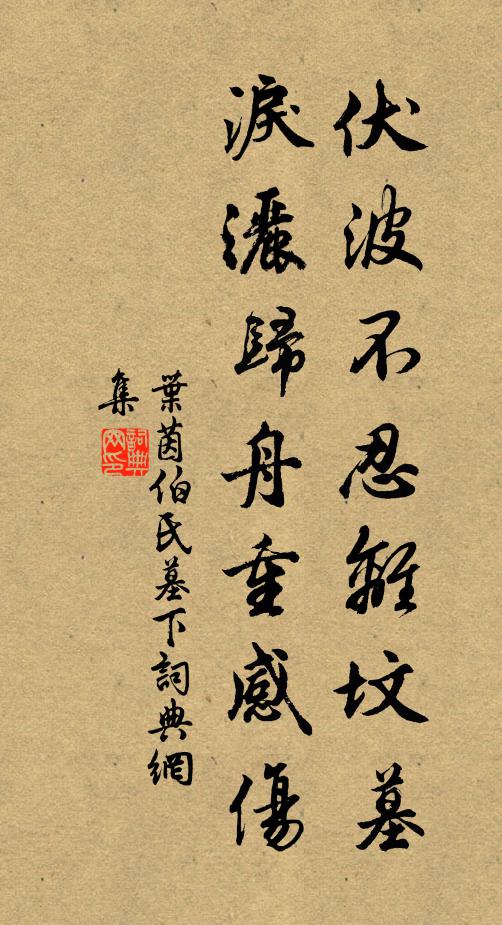 伏波不忍離墳墓
淚灑歸舟重感傷
葉茵伯氏墓下詞典網
集
詞典網印